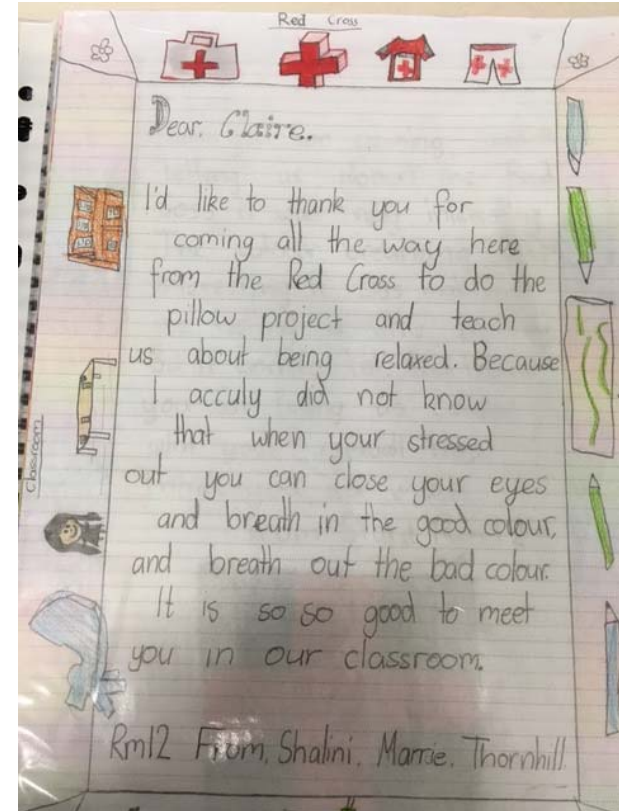 Red Cross
Dear. Claire.
I'd like to thank you for
coming all the way here
from the Red Cross to do the
pillow project and teach
us about being relaxed. Because
I acculy did not know
that when your stressed
out you can close your eyes
and breath in the good colour,
and breath out the bad colour.
It is so so good to meet
you in our classroom.
Rm12 From, Shalini. Marrie. Thornhill.
Classroom